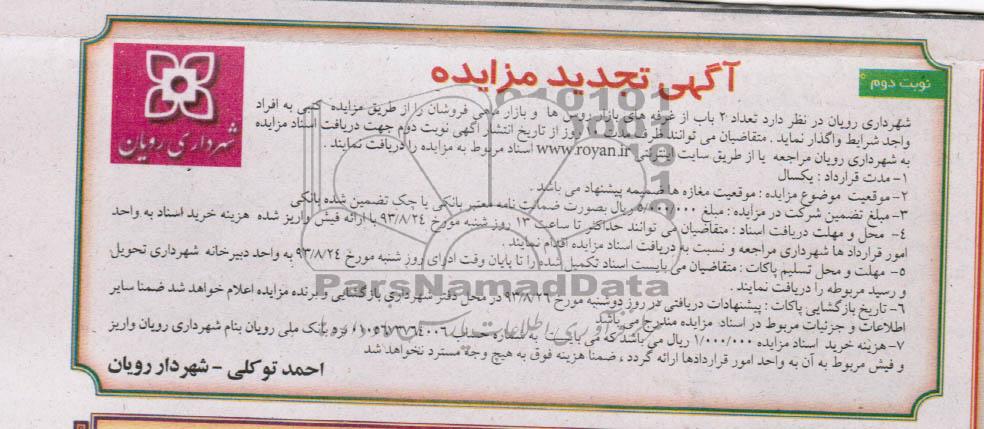 آگهی تجدید مزایده
نوبت دوم
شهرداری رویان
شهرداری رویان در نظر دارد تعداد ۲۰ باب از غرفه های بازار روس ها و بازار ماهی فروشان را از طریق مزایده کتبی به افراد
واجد شرایط واگذار نماید . متقاضیان می توانند ظرف مدت روز از تاریخ انتشار آگهی نوبت دوم جهت دریافت اسناد مزایده
به شهرداری رویان مراجعه یا از طریق سایت اینترنتی www.royan.ir اسناد مربوط به مزایده را دریافت نمایند .
۱- مدت قرارداد : یکسال
۲- موقعیت موضوع مزایده : موقعیت مغازه ها ضمیمه پیشنهاد می باشد .
۳- مبلغ تضمین شرکت در مزایده : مبلغ ۵/۰۰۰/۰۰۰ ریال بصورت ضمانت نامه معتبر بانکی یا چک تضمین شده بانکی
۴- محل و مهلت دریافت اسناد : متقاضیان می توانند حداکثر تا ساعت ۱۳ روز شنبه مورخ ۹۳/۸/۲۴ با ارائه فیش واریز شده هزینه خرید اسناد به واحد
امور قرارداد ها شهرداری مراجعه و نسبت به دریافت اسناد مزایده اقدام نمایند .
۵- مهلت و محل تسلیم پاکات : متقاضیان می بایست اسناد تکمیل شده را تا پایان وقت اداری روز شنبه مورخ ۹۳/۸/۲۴ به واحد دبیرخانه شهرداری تحویل
و رسید مربوطه را دریافت نمایند .
۶- تاریخ بازگشایی پاکات : پیشنهادات دریافتی در روز دوشنبه مورخ ۹۳/۸/۲۶ در محل دفتر شهرداری بازگشایی و برنده مزایده اعلام خواهد شد ضمنا سایر
اطلاعات و جزئیات مربوط در اسناد مزایده مندرج می باشد
۷- هزینه خرید اسناد مزایده ۱/۰۰۰/۰۰۰ ریال می باشد که می بایست به شماره حساب نزد بانک ملی رویان بنام شهرداری رویان واریز
و فیش مربوط به آن به واحد امور قراردادها ارائه گردد ، ضمنا هزینه فوق به هیچ وجه مسترد نخواهد شد
احمد توکلی - شهردار رویان
ParsNamadData